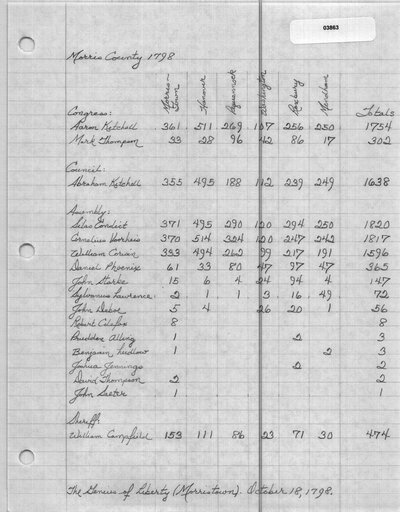 03863
Morris County 1798
Morris-town Hanover Pequannock Washington Roxbury Mendham
Congress: Totals
Aaron Kitchell 361 511 269 107 256 250 1754
Mark Thompson 33 28 96 42 86 17 302
Council:
Abraham Kitchell 355 495 188 112 239 249 1638
Assembly:
Silas Condict 371 495 290 120 294 250 1820
Cornelius Voorheis 370 514 324 120 247 242 1817
William Corwin 333 494 262 99 217 191 1596
Daniel Phoenix 61 33 80 47 97 47 365
John Starke 15 6 4 24 94 4 147
Sylvanus Lawrence 2 1 1 3 16 49 72
John Debow 5 4 26 20 1 56
Robert Colefax 8 8
Prudden Alling 1 2 3
Benjamin Ludlow 1 2 3
Joshua Jennings 2 2
David Thompson 2 2
John Salter 1 1
Sheriff:
William Campfield 153 111 86 23 71 30 474
The Genius of Liberty (Morristown). October 18, 1798.